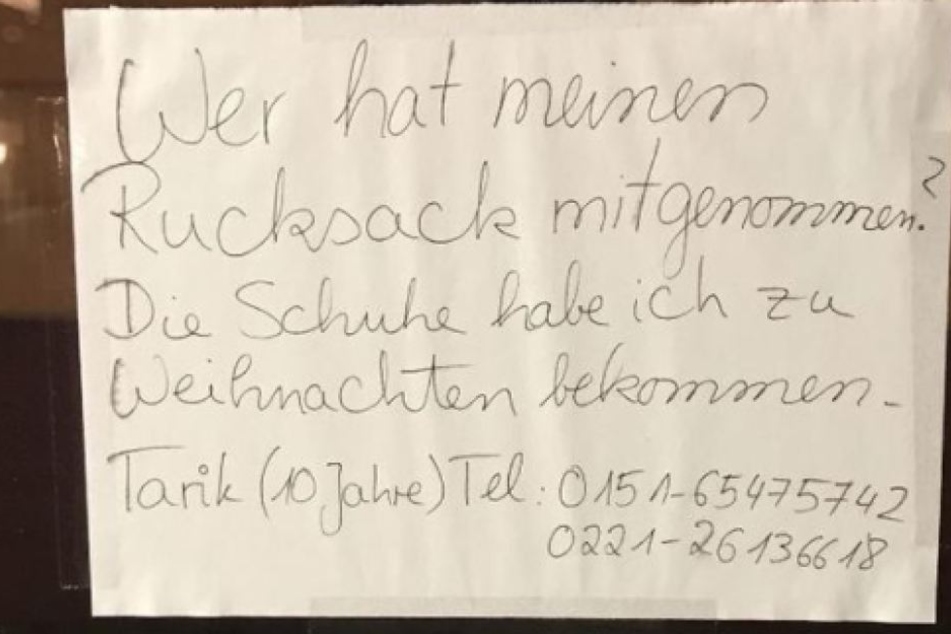 Wer hat meinen
Rucksack mitgenommen.?
Die Schuhe habe ich zu
Weihnachten bekommen.
Tarik (10 Jahre) Tel: 0151-65475742
0221-26136618